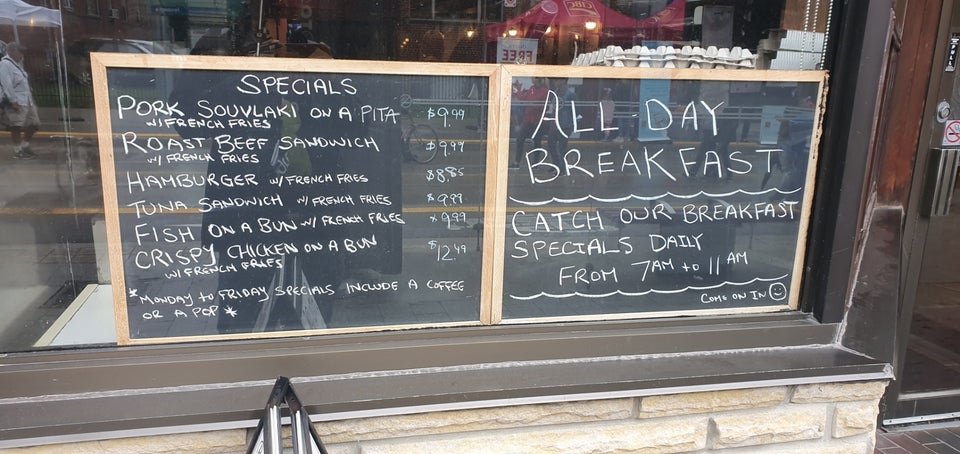 SPECIALS
PORK SOUVLAKI ON A PITA $9.99
W/ FRENCH FRIES
ROAST BEEF SANDWICH $9.99
W/ FRENCH FRIES
HAMBURGER W/ FRENCH FRIES $8.85
TUNA SANDWICH W/ FRENCH FRIES $9.99
FISH ON A BUN W/ FRENCH FRIES $9.99
CRISPY CHICKEN ON A BUN $12.49
W/ FRENCH FRIES
*MONDAY to FRIDAY SPECIALS INCLUDE A COFFEE
OR A POP*
ALL DAY
BREAKFAST
CATCH OUR BREAKFAST
SPECIALS DAILY
FROM 7AM to 11AM
COME ON IN
CIBC
FREE